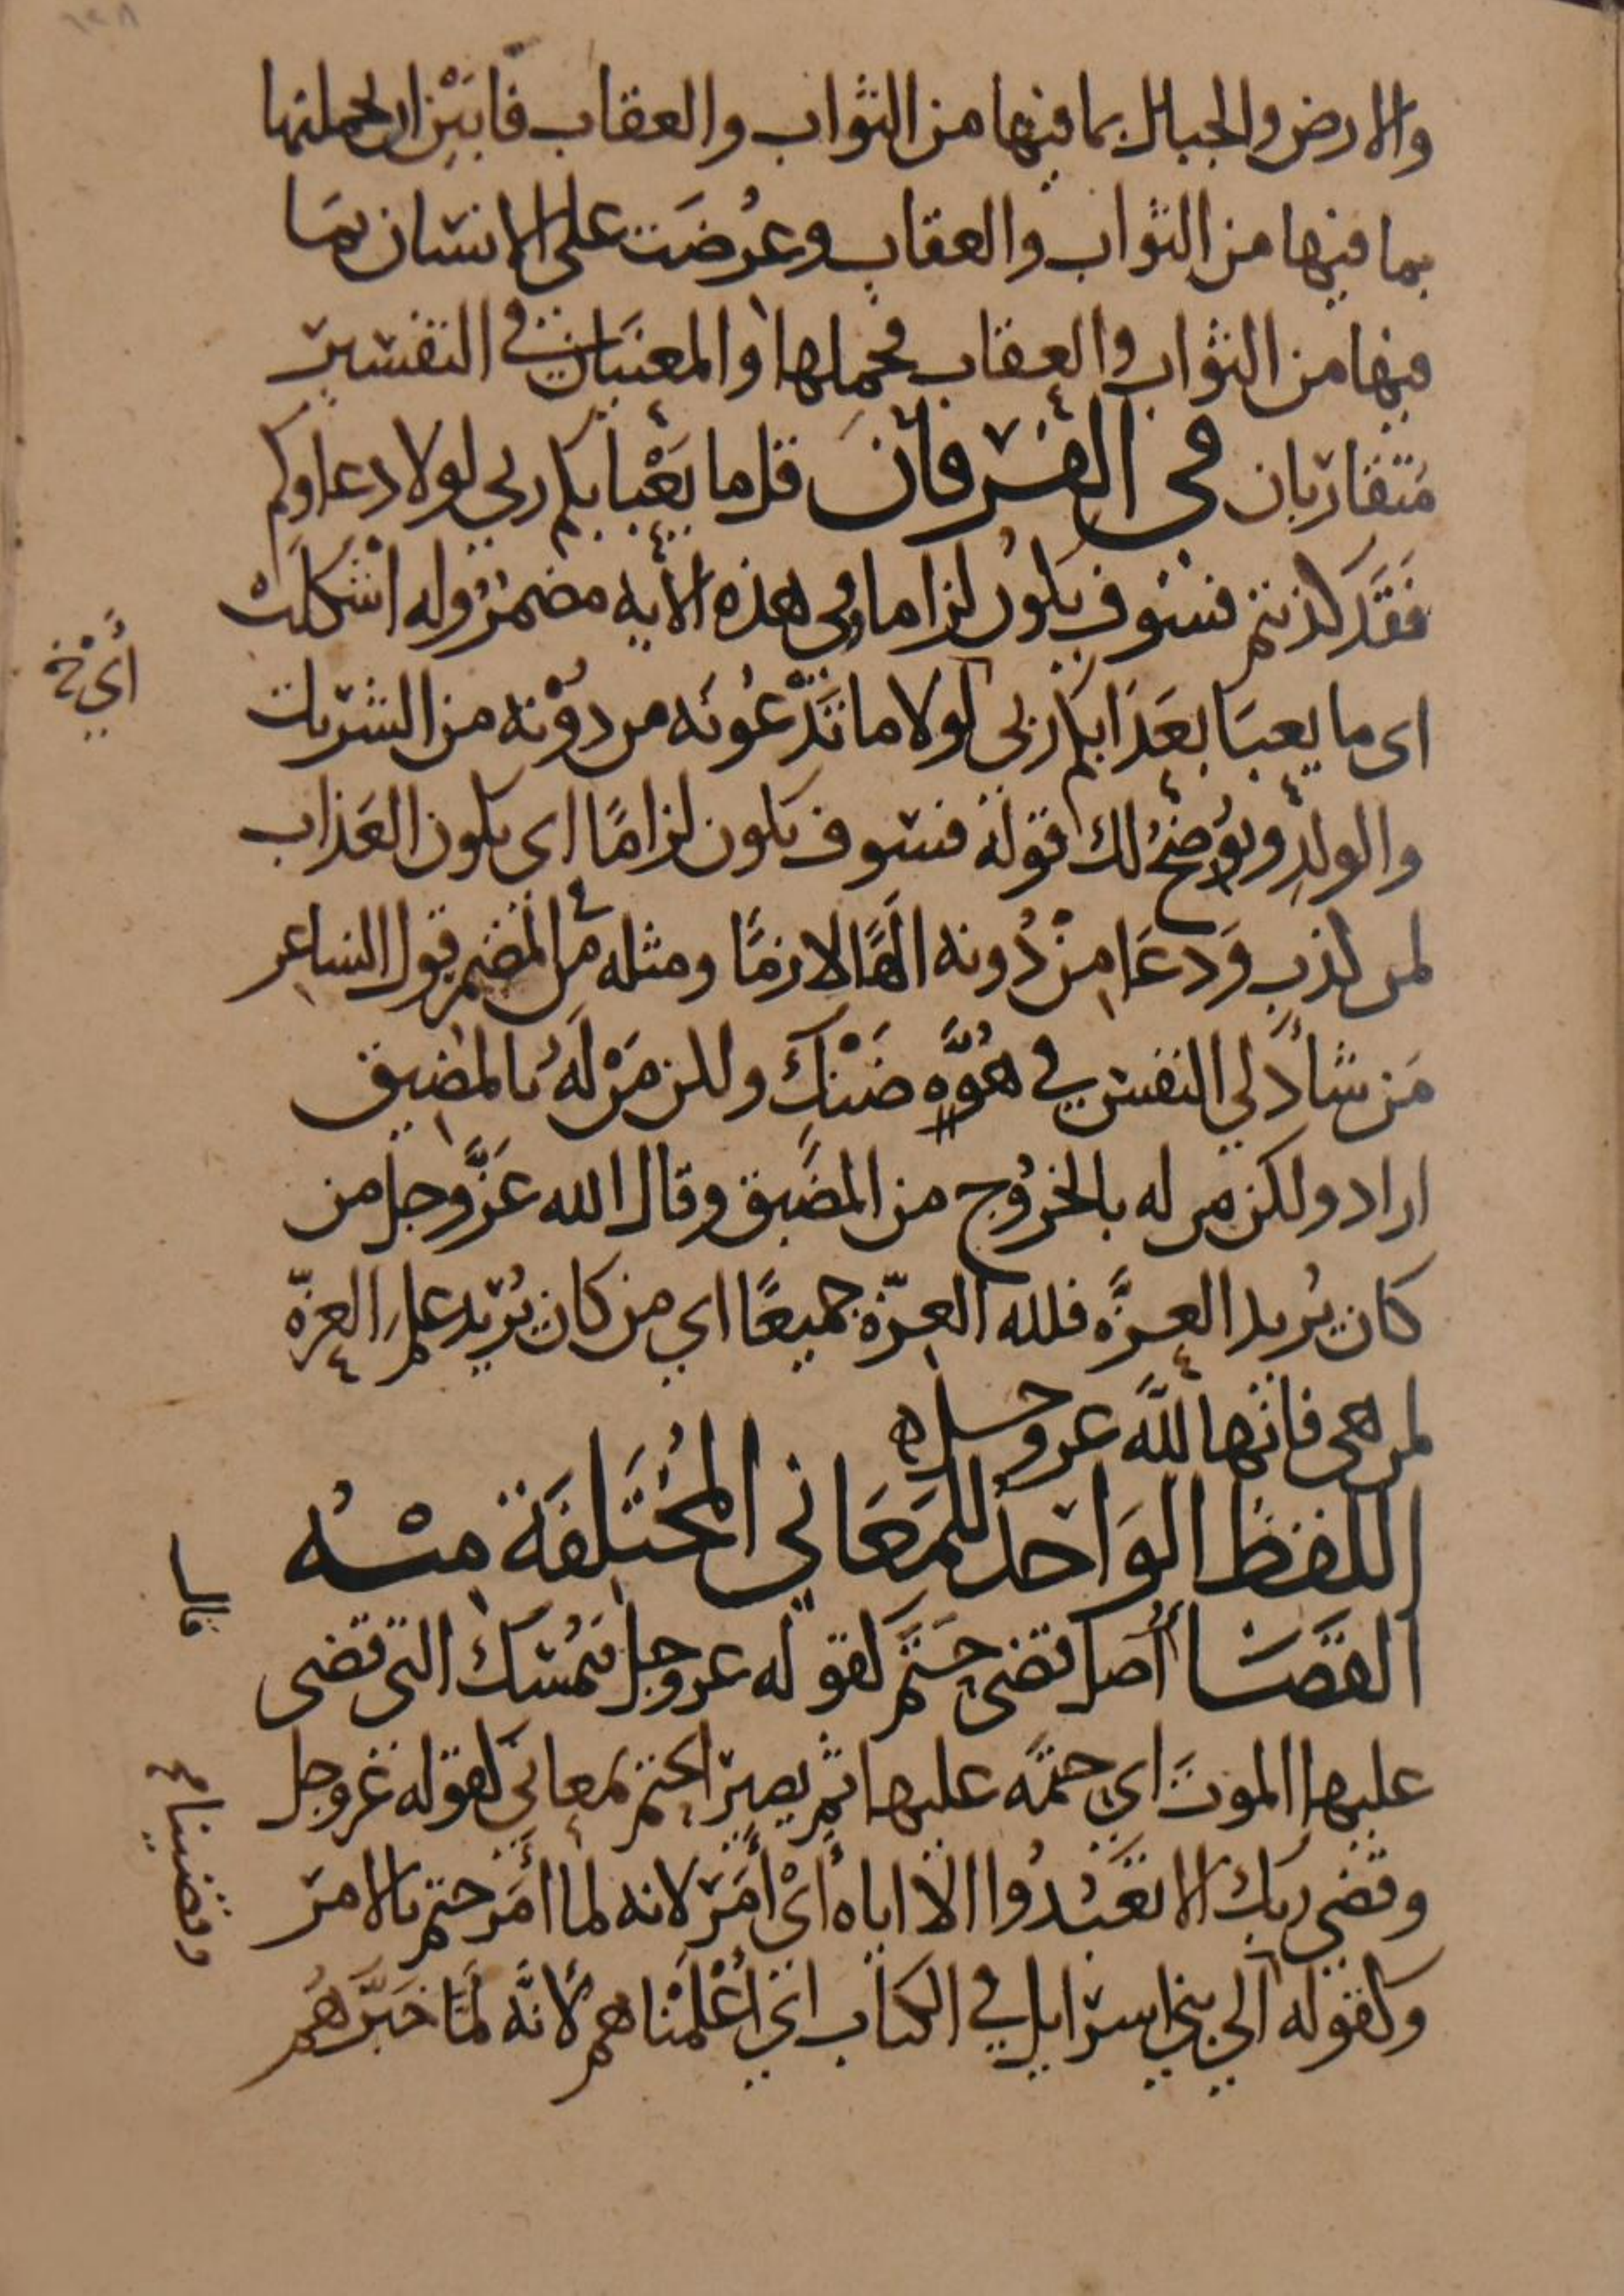 والارض والجبال بما فيها من الثواب والعقاب فابين ان يحملنها
بما فيها من الثواب والعقاب وعُرضَت على الانسان بمَا
فيها من الثواب والعقاب فحملها والمعنيَان في التفسير
مُتقاربان في الفرقان قل ما يَعْبا بكم ربي لولا دعاوكم
فقَد كذبتم فسَوف يكونُ لزاما وفي هذه الآيه مضمرٌ وله اشكلَتْ
اى ما يعبَا بعَذابكم ربي لولا ما تَدْعُونَه من دوْنه من الشريك
والولد ويُوضحُ لك قوله فسوف يكون لزامًا اى يكون العَذاب
لمن كذب وَدعَا مِنْ دُونه الهًا لازمًا ومثله من المضمر قول الشاعر
مَن شادٌ لي النفس في هُوَّهٍ ضَنْكٍ ولكن مَنْ لَهُ بالمضيق
اراد ولكن من له بالخروُج من المضَيق وقال الله عَزَّوجل من
كان يُريد العزَّه فلله العزّة جميعًا اي من كان يُريد علم العزّه
لمن هي فانها للَّه عز وجل ه
اللفظُ الوَاحدُ للمَعَاني المُختَلِفَة منه
القضَا أصل قضى حَتَم كقوله عز وجل فيُمْسك التى قضى
عليها الموتَ اي حتمَه عليها ثم يصير الحتم بمعانى كقوله عز وجل
وقضى ربك الا تعَبُدُوا الا اياه أىْ أمَرَ لانه لما أمَر حتم بالامر
وكقوله الي بني اسرايل في الكتاب اي أعْلمْناهم لأنّه لمَّا خَبَّرهُم
أيْ خ
قال
وقضينا صح